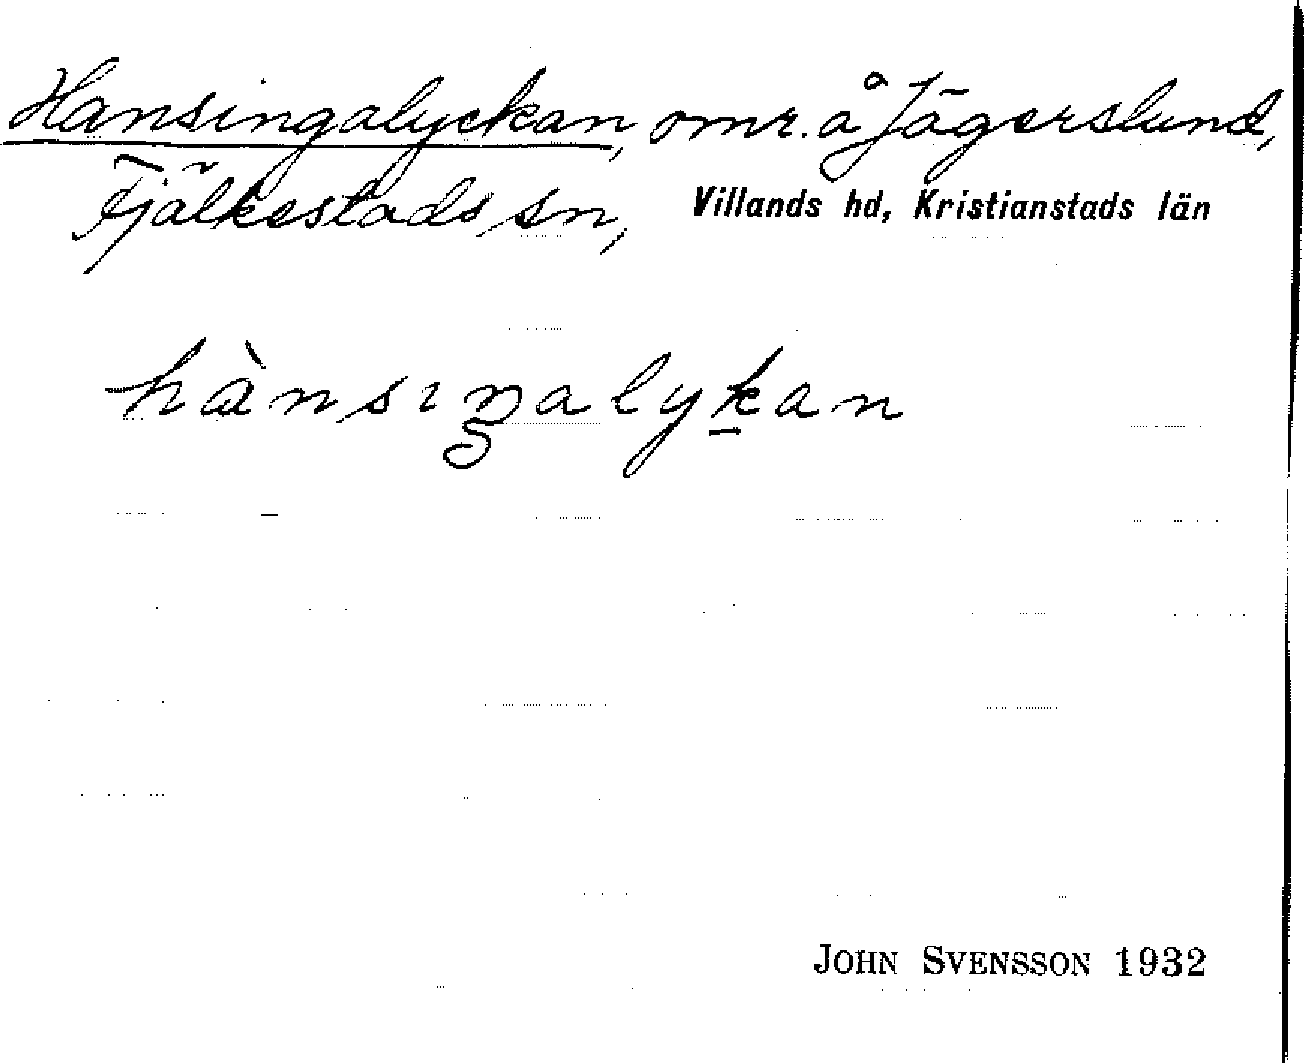 Hansingalyckan, omr. å Jägerslund,
Fjälkestads sn, Villands hd, Kristianstads län
hànsıŋalykan
JOHN SVENSSON 1932